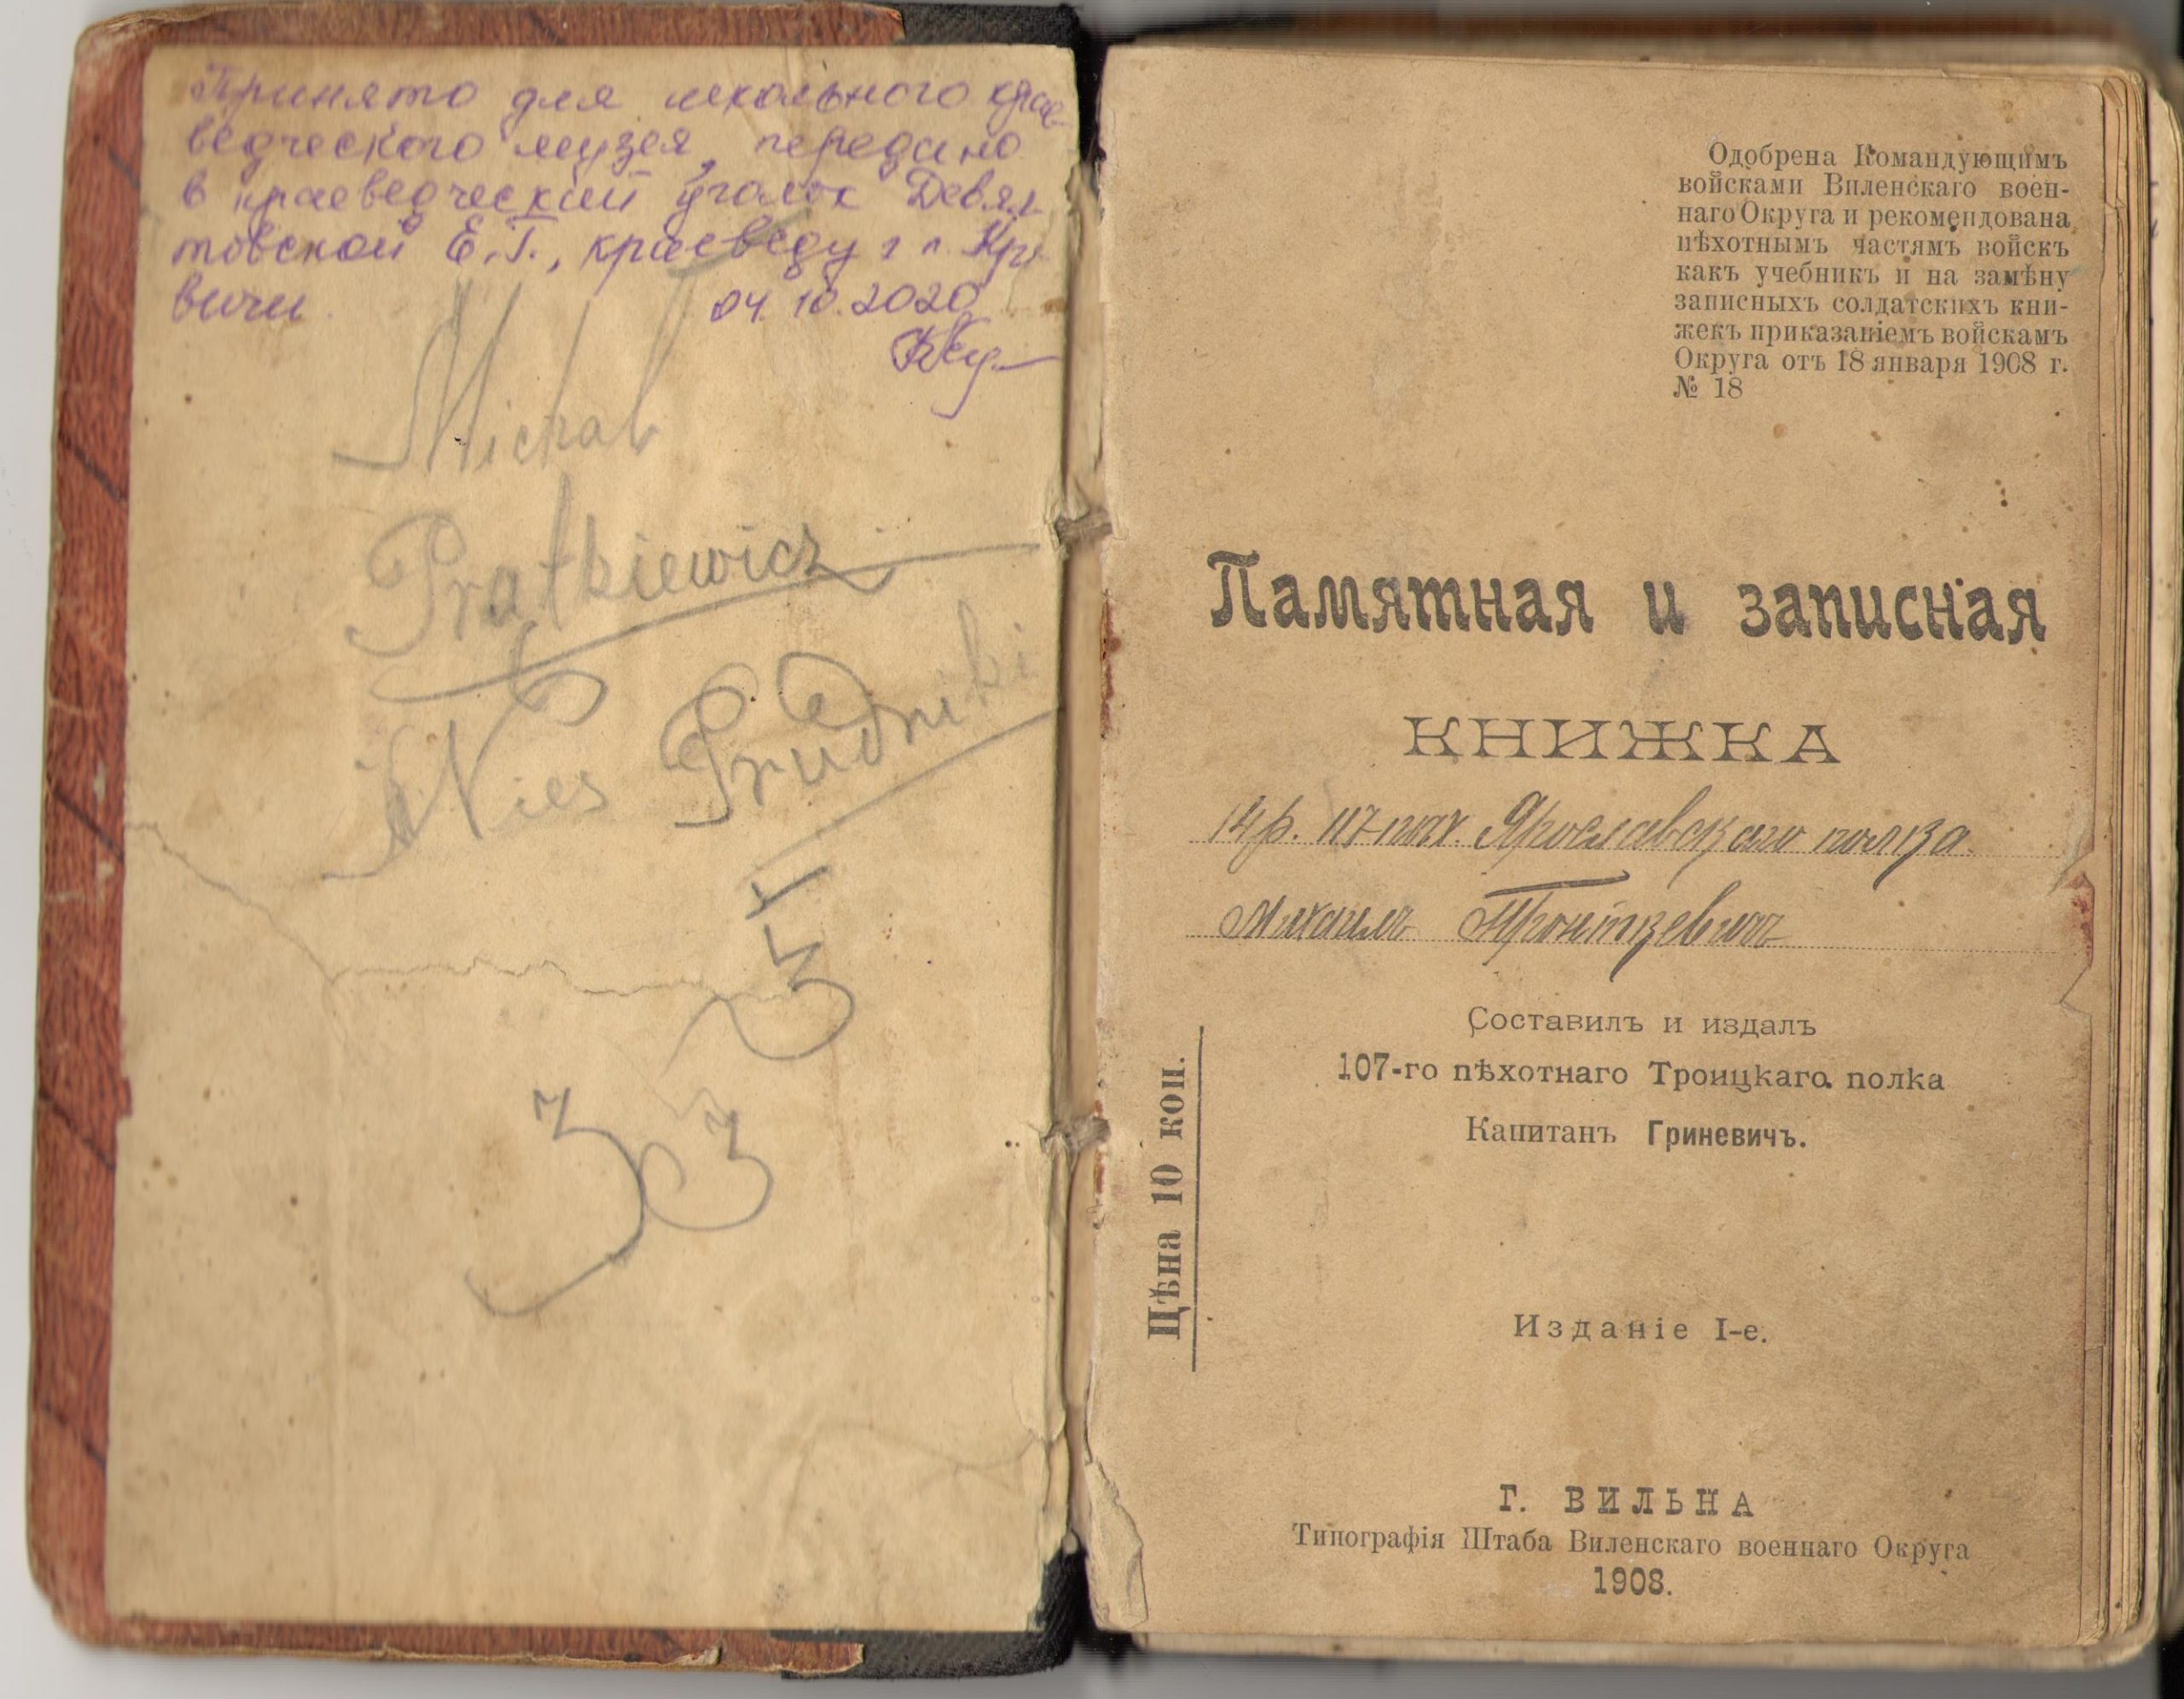 Принято для школьного крае-
ведческого музея, передано
в краеведческий уголок Девял-
товской Е.Г., краеведу г п. Кри
вичи.
04.10.2020
Michał
Pratkiewicz
Wieś Prudniki
33
Одобрена Командующимъ
войсками Виленскаго воен-
наго Округа и рекомендована
пѣхотнымъ частямъ войскъ
какъ учебникъ и на замѣну
записныхъ солдатскихъ кни-
жекъ приказаніемъ войскамъ
Округа отъ 18 января 1908 г.
№ 18
Памятная и записная
КНИЖКА
14 р. 117 пѣх. Ярославскаго полка.
Михаилъ
Составилъ и издалъ
107-го пѣхотнаго Троицкаго полка
Капитанъ Гриневичъ.
Цѣна 10 коп.
Изданіе I-е.
Г. ВИЛЬНА
Типографія Штаба Виленскаго военнаго Округа
1908.